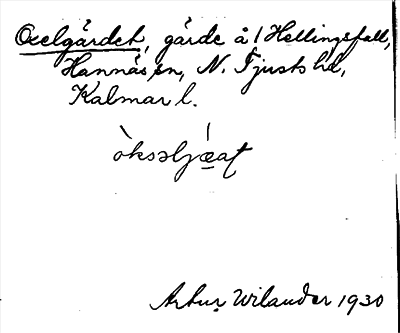 Oxelgärdet, gärde å 1 Hellingsfall,
Hannäs sn, N. Tjusts hd,
Kalmar l.
òksəljæ̀at
Artur Wilander 1930